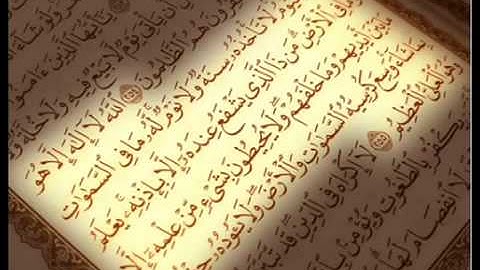 وَلَوْ شَآءَ
يَـٰٓأَيُّهَا ٱلَّذِينَ ءَامَنُوٓا۟
أَن يَأْتِىَ يَوْمٌ لَّا بَيْعٌ فِيهِ وَلَا خُلَّةٌ
هُمُ ٱلظَّـٰلِمُونَ ٢٥٤ ٱللَّهُ لَآ إِلَـٰهَ إِلَّا هُوَ
لَا تَأْخُذُهُۥ سِنَةٌ وَلَا نَوْمٌ لَّهُۥ مَا فِى ٱلسَّمَـٰوَٰتِ
فِى ٱلْأَرْضِ مَن ذَا ٱلَّذِى يَشْفَعُ عِندَهُۥٓ إِلَّا بِإِذْنِهِۦ يَعْلَمُ
بَيْنَ أَيْدِيهِمْ وَمَا خَلْفَهُمْ وَلَا يُحِيطُونَ بِشَىْءٍ مِّنْ عِلْمِهِۦٓ إِلَّا
بِمَا شَآءَ وَسِعَ كُرْسِيُّهُ ٱلسَّمَـٰوَٰتِ وَٱلْأَرْضَ وَلَا يَـُٔودُهُۥ
وَهُوَ ٱلْعَلِىُّ ٱلْعَظِيمُ ٢٥٥ لَآ إِكْرَاهَ فِى ٱلدِّينِ قَد تَّبَيَّنَ
يَكْفُرْ بِٱلطَّـٰغُوتِ وَيُؤْمِنۢ
لَا ٱنفِصَامَ لَهَا